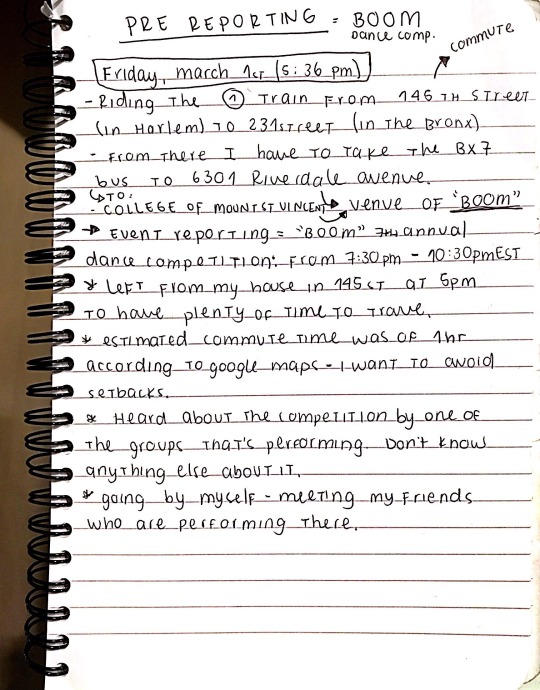 PRE REPORTING = BOOM
Dance comp.
commute
Friday, march 1st (5:36 pm)
- Riding the ① Train from 145TH Street
(in Harlem) TO 231street (in the Bronx)
- From there I have to take the BX7
bus to 6301 Riverdale avenue.
↳TO:
- COLLEGE OF MOUNT ST VINCENT → venue OF "BOOM"
→ Event reporting = "BOOM" 7TH annual
dance competition: From 7:30pm - 10:30pm EST
* Left from my house in 145 ST at 5pm
to have plenty of time to travel.
* estimated commute time was of 1hr
according to google maps - I want to avoid
setbacks.
* Heard about the competition by one of
the groups that's performing. Don't know
anything else about it.
* going by myself - meeting my friends
who are performing there.